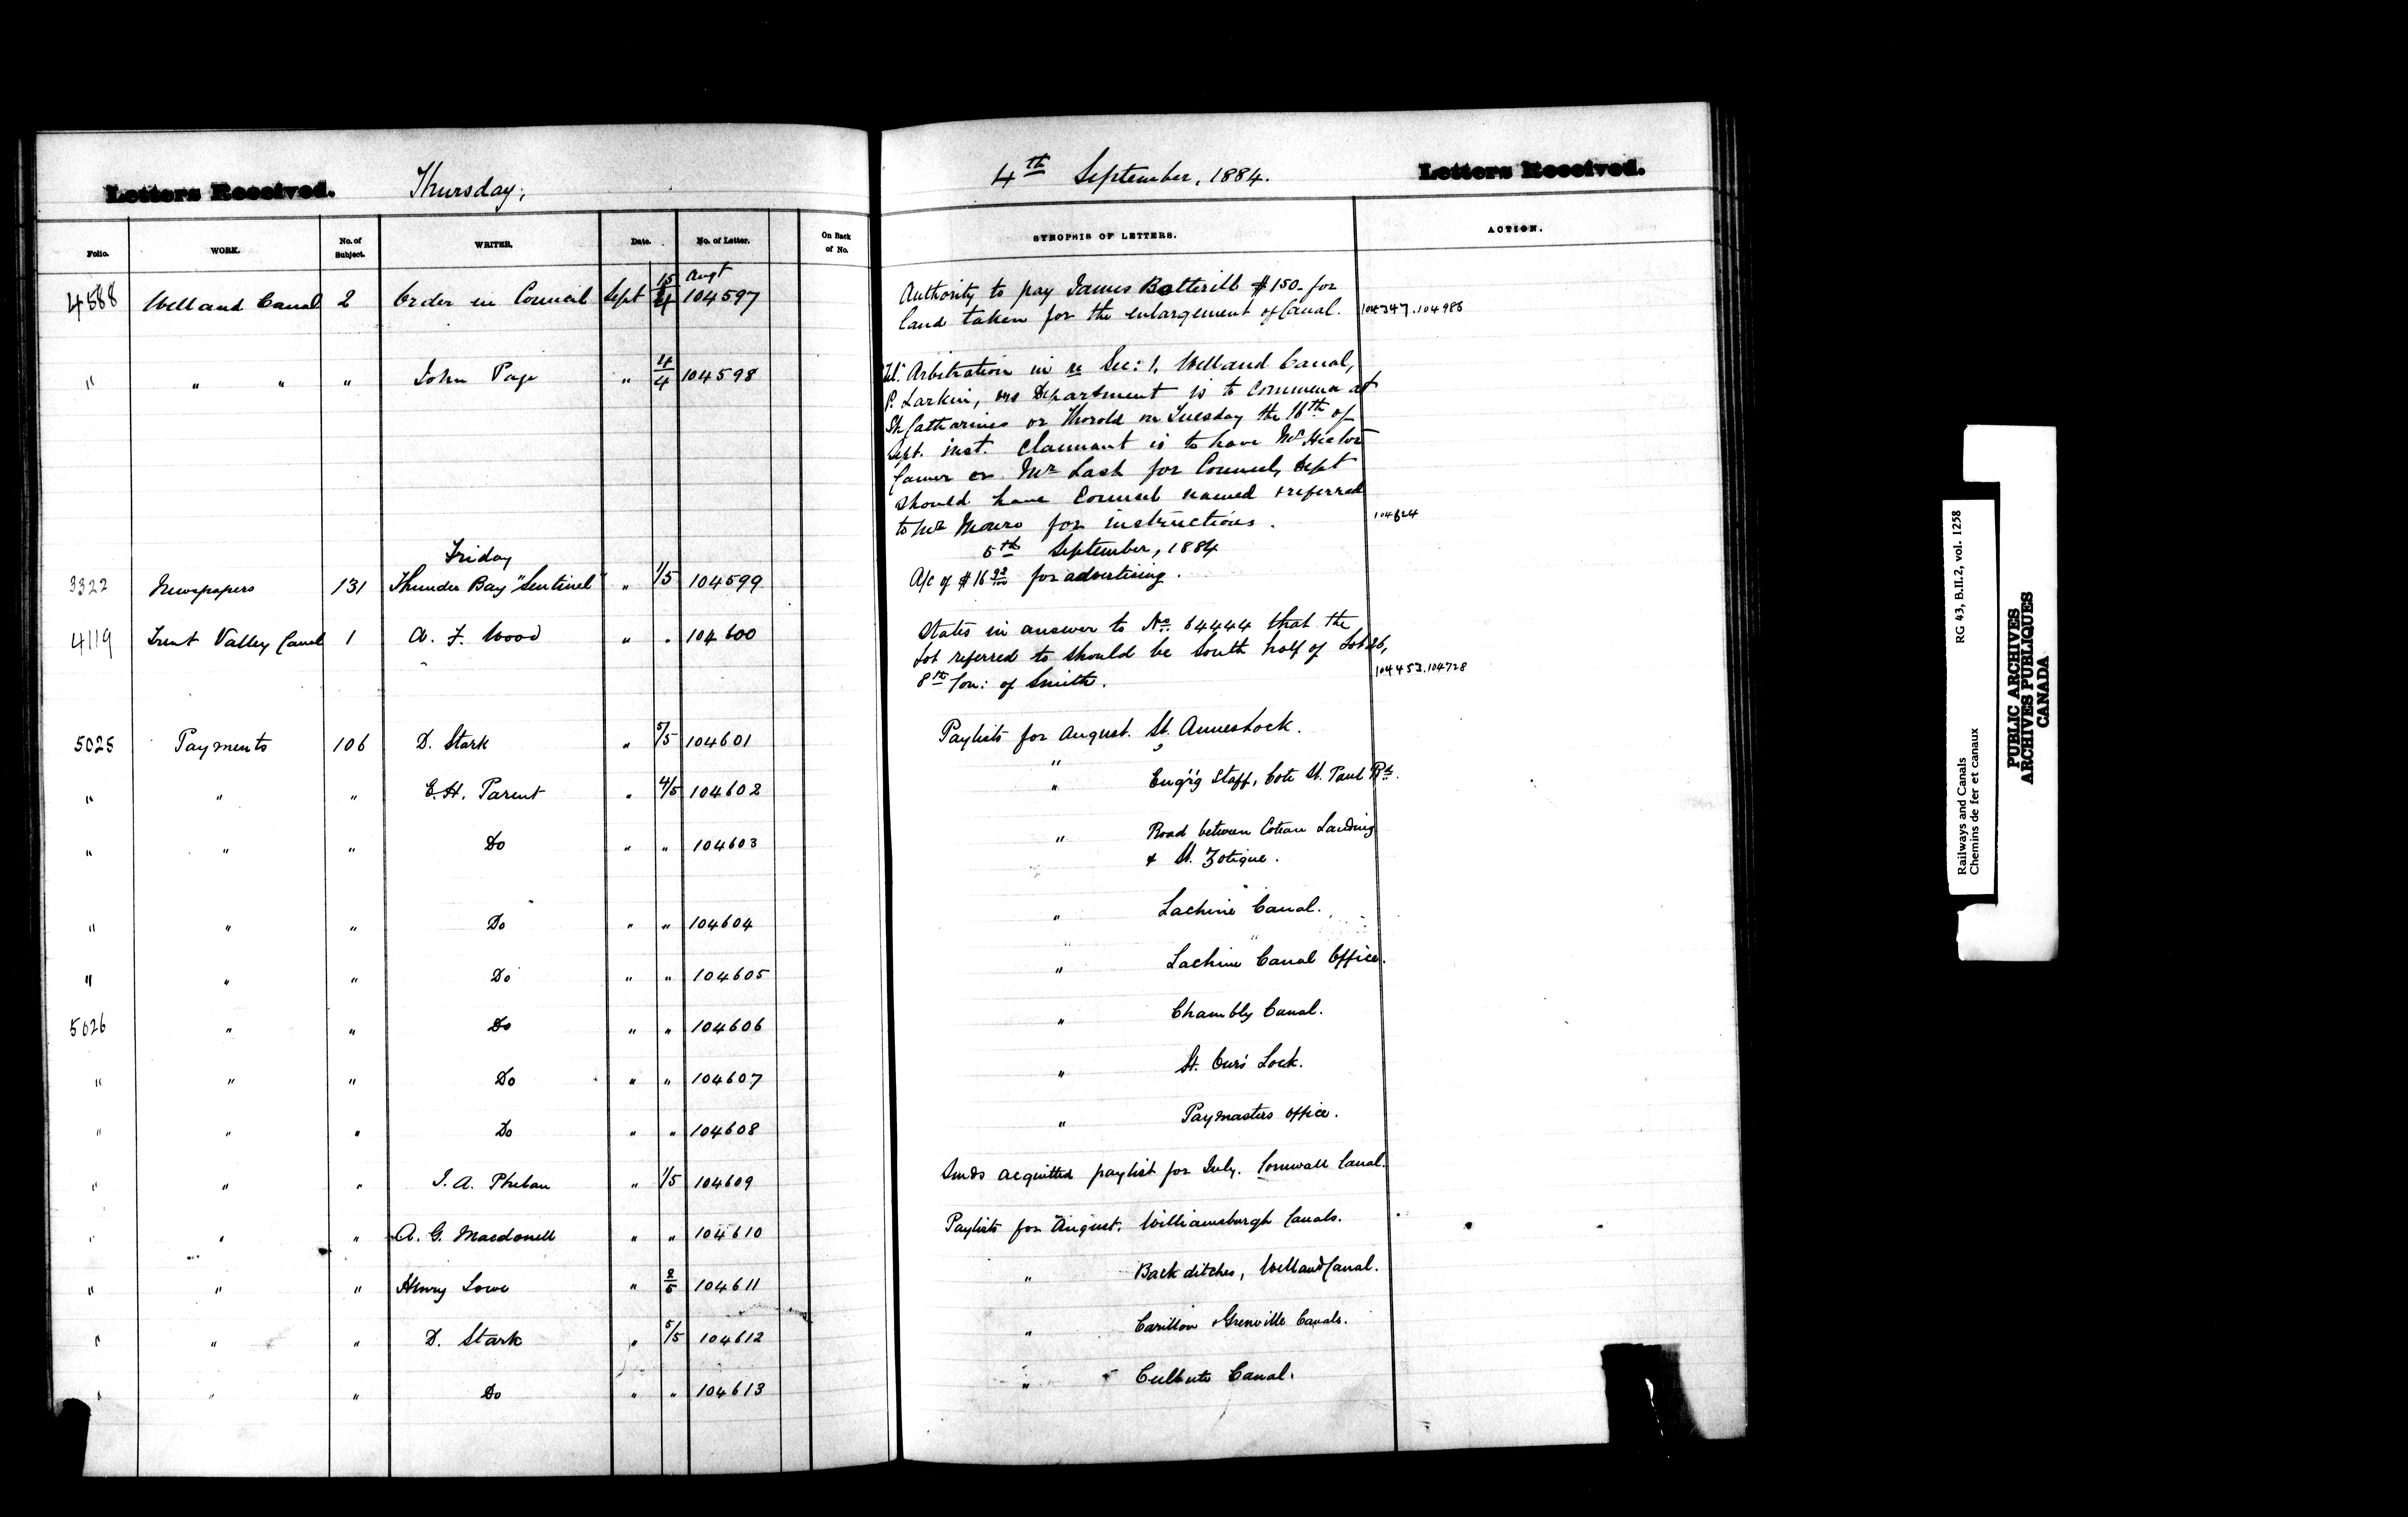 Letters Received. Thursday, 4th September, 1884. Letters Received.
Folio. WORK. No. of Subject. WRITER. Date. No. of Letter. On Back of No. SYNOPSIS OF LETTERS. ACTION.
4588 Welland Canal 2 Order in Council Sept 15 Augt /4 104597 Authority to pay James Botterill $150- for
land taken for the enlargement of Canal. 104347.104986
" " " " John Page " 4/4 104598 Tel: Arbitration in re Sec: 1, Welland Canal,
P. Larkin, vrs Department is to commence at
St Catharines or Thorold on Tuesday the 16th of
Sept. inst. Claimant is to have Mr Hector
Camer or Mr Lash for Counsel, Dept
should have Counsel named & referred
to Mr Monro for instructions. 104624
Friday 5th September, 1884
3322 Newspapers 131 Thunder Bay "Sentinel" " 1/5 104599 A/c of $16 for advertising.
4119 Trent Valley Canal 1 A. F. Wood " " 104600 States in answer to No. 64444 that the
lot referred to should be South half of Lot 26,
8th Con: of Smith. 104453.104728
5025 Payments 106 D. Stark " 5/5 104601 Paylists for August. St. Annes Lock.
" " " E. H. Parent " 4/5 104602 " " Eng'r'g Staff, Cote St. Paul Rd.
" " " Do " " 104603 " Road between Coteau Landing
& St. Zotique.
" " " Do " " 104604 " Lachine Canal.
" " " Do " " 104605 " Lachine Canal Office.
5026 " " Do " " 104606 " Chambly Canal.
" " " Do " " 104607 " St. Ours Lock.
" " " Do " " 104608 " Paymasters office.
" " " J. A. Phelan " 1/5 104609 Sends acquitted paylist for July. Cornwall Canal.
" " " A. G. Macdonell " " 104610 Paylists for August. Williamsburgh Canals.
" " " Henry Lowe " 2/5 104611 " Back ditches, Welland Canal.
" " " D. Stark " 5/5 104612 " Carillon & Grenville Canals.
" " " Do " " 104613 " Culbute Canal.
Railways and Canals RG 43, B.II.2, vol. 1258
Chemins de fer et canaux
PUBLIC ARCHIVES
ARCHIVES PUBLIQUES
CANADA